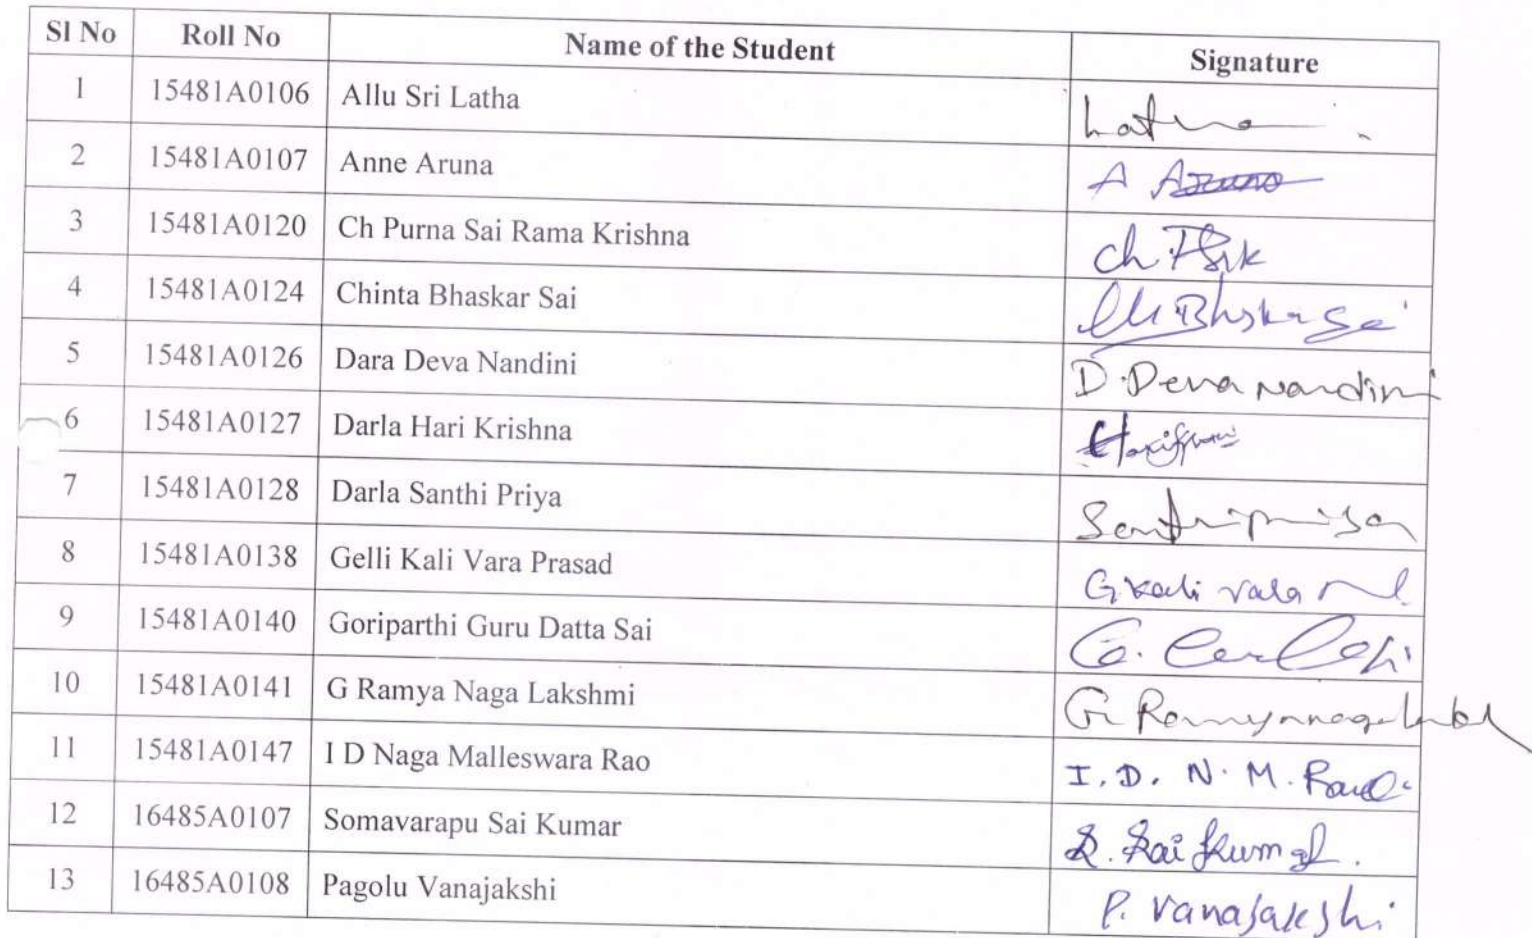 Sl No Roll No Name of the Student Signature
1 15481A0106 Allu Sri Latha Latha
2 15481A0107 Anne Aruna A Aruna
3 15481A0120 Ch Purna Sai Rama Krishna Ch.PSRK
4 15481A0124 Chinta Bhaskar Sai
5 15481A0126 Dara Deva Nandini D.Deva Nandini
6 15481A0127 Darla Hari Krishna
7 15481A0128 Darla Santhi Priya Santhipriya
8 15481A0138 Gelli Kali Vara Prasad G kali vara
9 15481A0140 Goriparthi Guru Datta Sai G.
10 15481A0141 G Ramya Naga Lakshmi G Ramya naga
11 15481A0147 I D Naga Malleswara Rao I. D. N. M. Rao
12 16485A0107 Somavarapu Sai Kumar S. Sai Kumar.
13 16485A0108 Pagolu Vanajakshi P. Vanajakshi